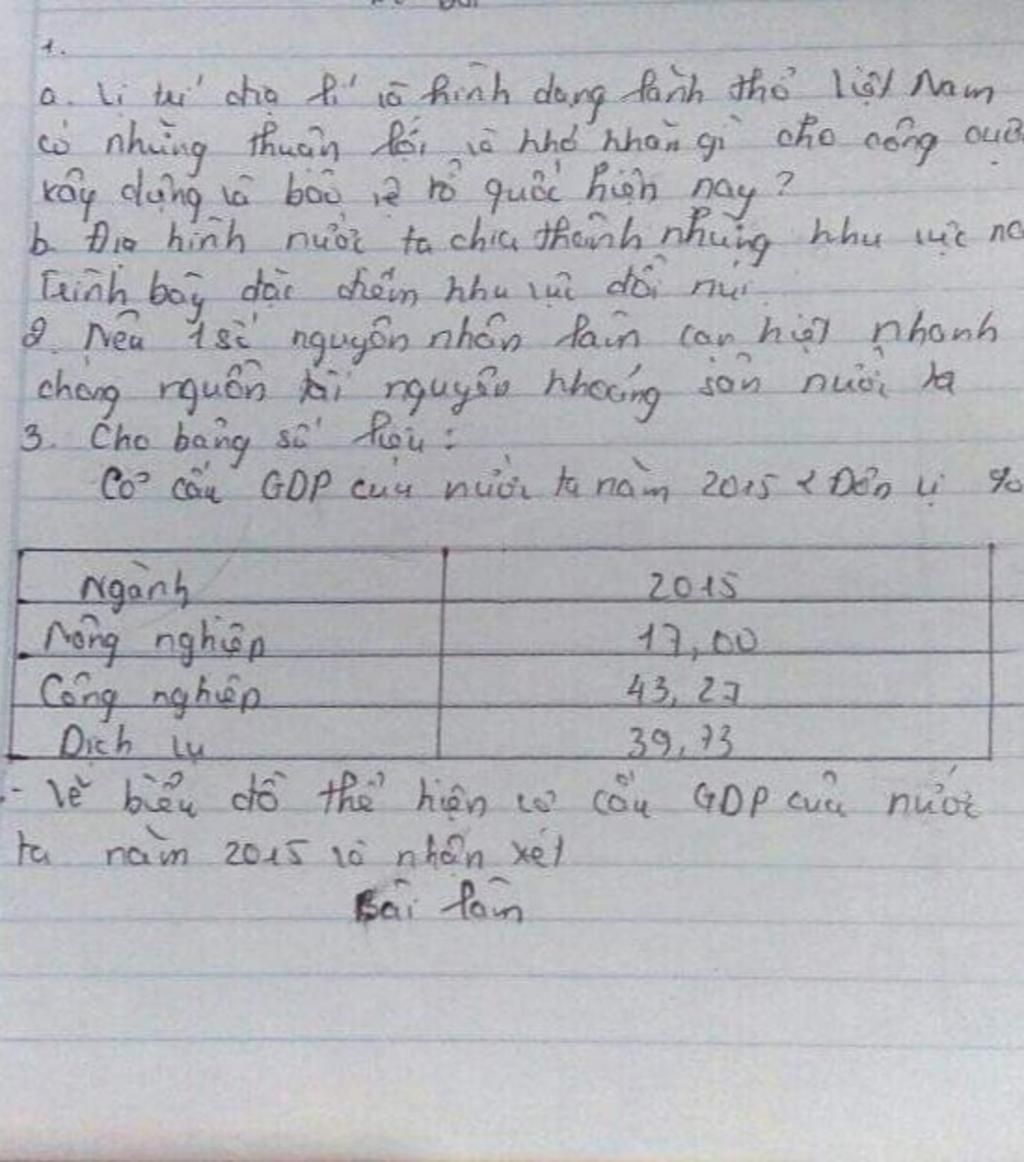 1.
a. Vị trí địa lí và hình dạng lãnh thổ Việt Nam
có những thuận lợi và khó khăn gì cho công cuộ
xây dựng và bảo vệ tổ quốc hiện nay?
b. Địa hình nước ta chia thành những khu vực
Trình bày đặc điểm khu vực đồi núi.
2. Nêu 1 số nguyên nhân làm cạn kiệt nhanh
chóng nguồn tài nguyên khoáng sản nước ta
3. Cho bảng số liệu:
Cơ cấu GDP của nước ta năm 2015 < Đơn vị %
Ngành 2015
Nông nghiệp 17,00
Công nghiệp 43,27
Dịch vụ 39,73
- Vẽ biểu đồ thể hiện cơ cấu GDP của nước
ta năm 2015 và nhận xét
Bài làm